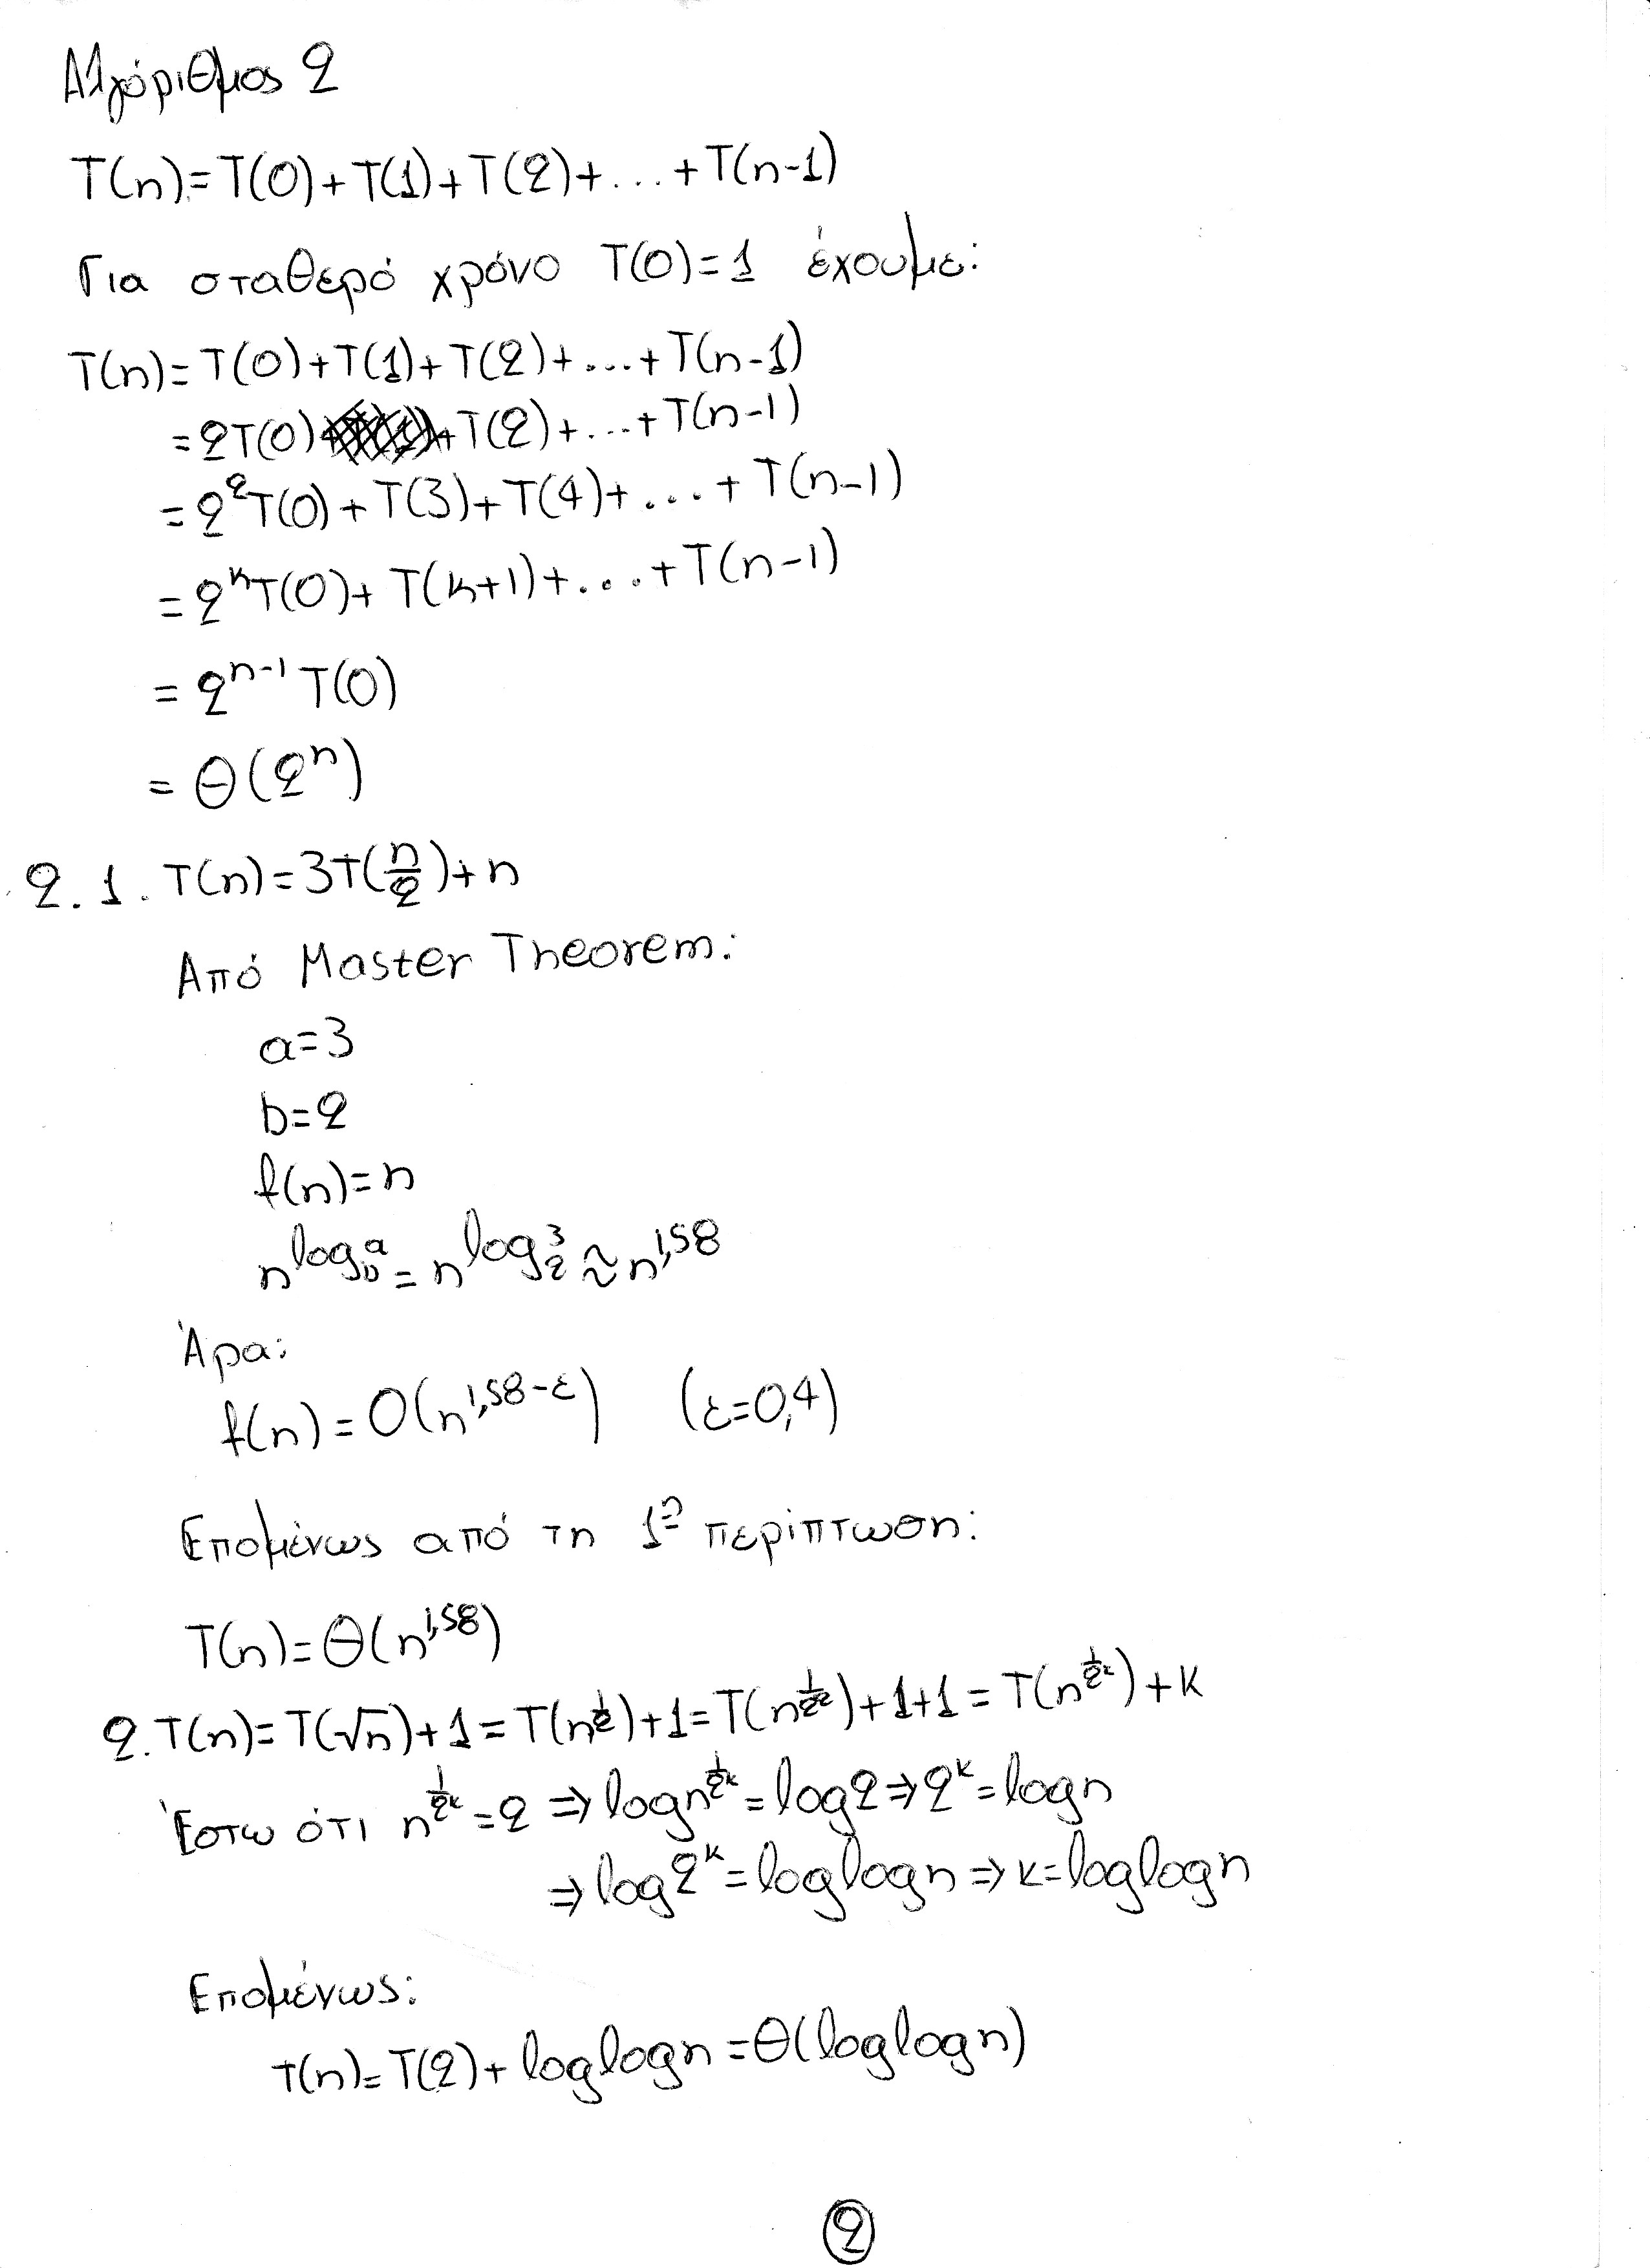 Αλγόριθμος 2
T(n)=T(0)+T(1)+T(2)+...+T(n-1)
Για σταθερό χρόνο T(0)=1 έχουμε:
T(n)=T(0)+T(1)+T(2)+...+T(n-1)
=2T(0)+T(2)+...+T(n-1)
=2²T(0)+T(3)+T(4)+...+T(n-1)
=2^k T(0)+T(k+1)+...+T(n-1)
=2^(n-1) T(0)
=Θ(2^n)
2.1. T(n)=3T(n/2)+n
Από Master Theorem:
a=3
b=2
f(n)=n
n^(log_b a)=n^(log_2 3)≈n^1,58
Άρα:
f(n)=O(n^(1,58-ε)) (ε=0,4)
Επομένως από τη 1η περίπτωση:
T(n)=Θ(n^1,58)
2. T(n)=T(√n)+1=T(n^(1/2))+1=T(n^(1/2²))+1+1=T(n^(1/2^k))+k
Έστω ότι n^(1/2^k)=2⇒logn^(1/2^k)=log2⇒2^k=logn
⇒log2^k=loglogn⇒k=loglogn
Επομένως:
T(n)=T(2)+loglogn=Θ(loglogn)
2